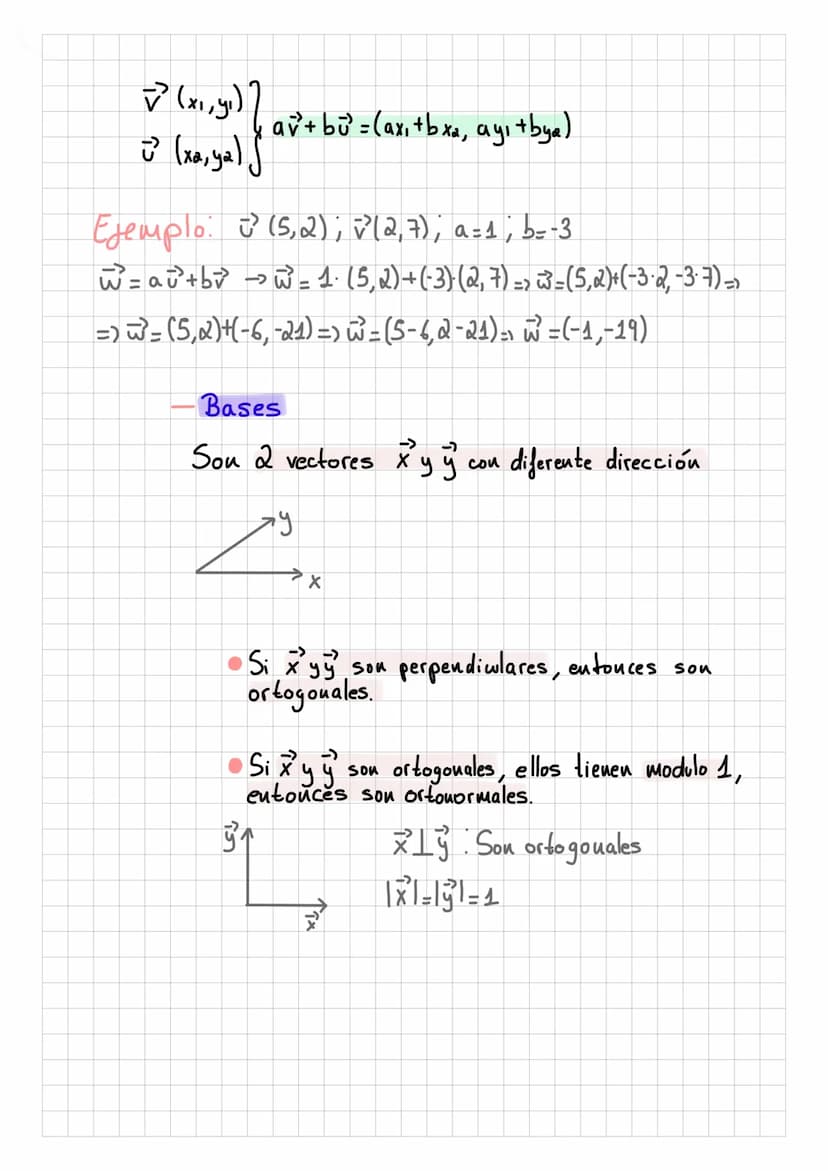 v⃗ (x₁,y₁)
u⃗ (x₂,y₂)
av⃗+bu⃗=(ax₁+bx₂, ay₁+by₂)
Ejemplo: u⃗ (5,2); v⃗(2,7); a=1; b=-3
w⃗=au⃗+bv⃗ → w⃗=1·(5,2)+(-3)·(2,7)=> w⃗=(5,2)+(-3·2,-3·7)=>
=> w⃗=(5,2)+(-6,-21)=> w⃗=(5-6,2-21)=> w⃗=(-1,-19)
— Bases
Son 2 vectores x⃗ y y⃗ con diferente dirección
y
x
• Si x⃗ y y⃗ son perpendiculares, entonces son
ortogonales.
• Si x⃗ y y⃗ son ortogonales, ellos tienen modulo 1,
entonces son ortonormales.
y⃗
x⃗
x⃗⊥y⃗ : Son ortogonales
|x⃗|=|y⃗|=1